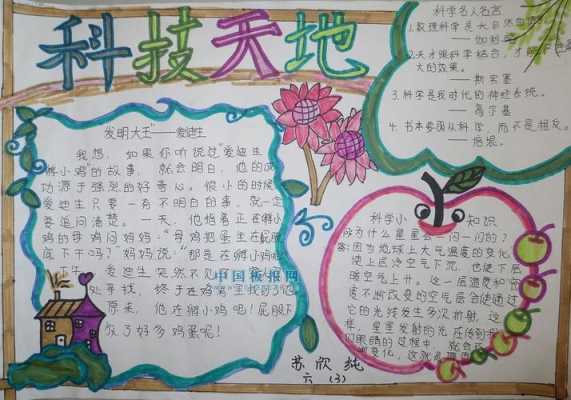 科技天地
发明大王"——爱迪生
我想，如果你听说过"爱迪生
孵小鸡"的故事，就会明白，他的成
功源于强烈的好奇心。很小的时候
爱迪生只要一有不明白的事，就一定
要追问清楚。一天，他指着正在孵小
鸡的母鸡问妈妈："母鸡把蛋坐在屁股
底下干吗？"妈妈说："那是在孵小鸡呢
爱迪生突然不见了
处寻找，终于在鸡窝里找到了他
原来，他在孵小鸡吧！屁股下
放了好多鸡蛋呢！
中国板报网
科学名人名言
1.数理科学是大自然
——伽利略
2.天才跟科学结合，才
大的效果。
——斯宾塞
3.科学是我时代的神经系统。
——高尔基
4.书本要围从科学，而不是相反。
——培根
科学小知识
为什么星星会一闪一闪的？
答：因为地球上大气温度的变化，
使上层冷空气下沉，也使下层
暖空气上升。这一层温度和密
度不断改变的空气层会使通过
它的光线发生多次折射，这
样，星星发射的光在传到
们眼睛的过程中，就会
变化，这就
苏欣纯
六（3）